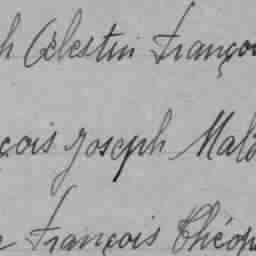 h Célestin Françoi
çois Joseph Mala
e François Théop